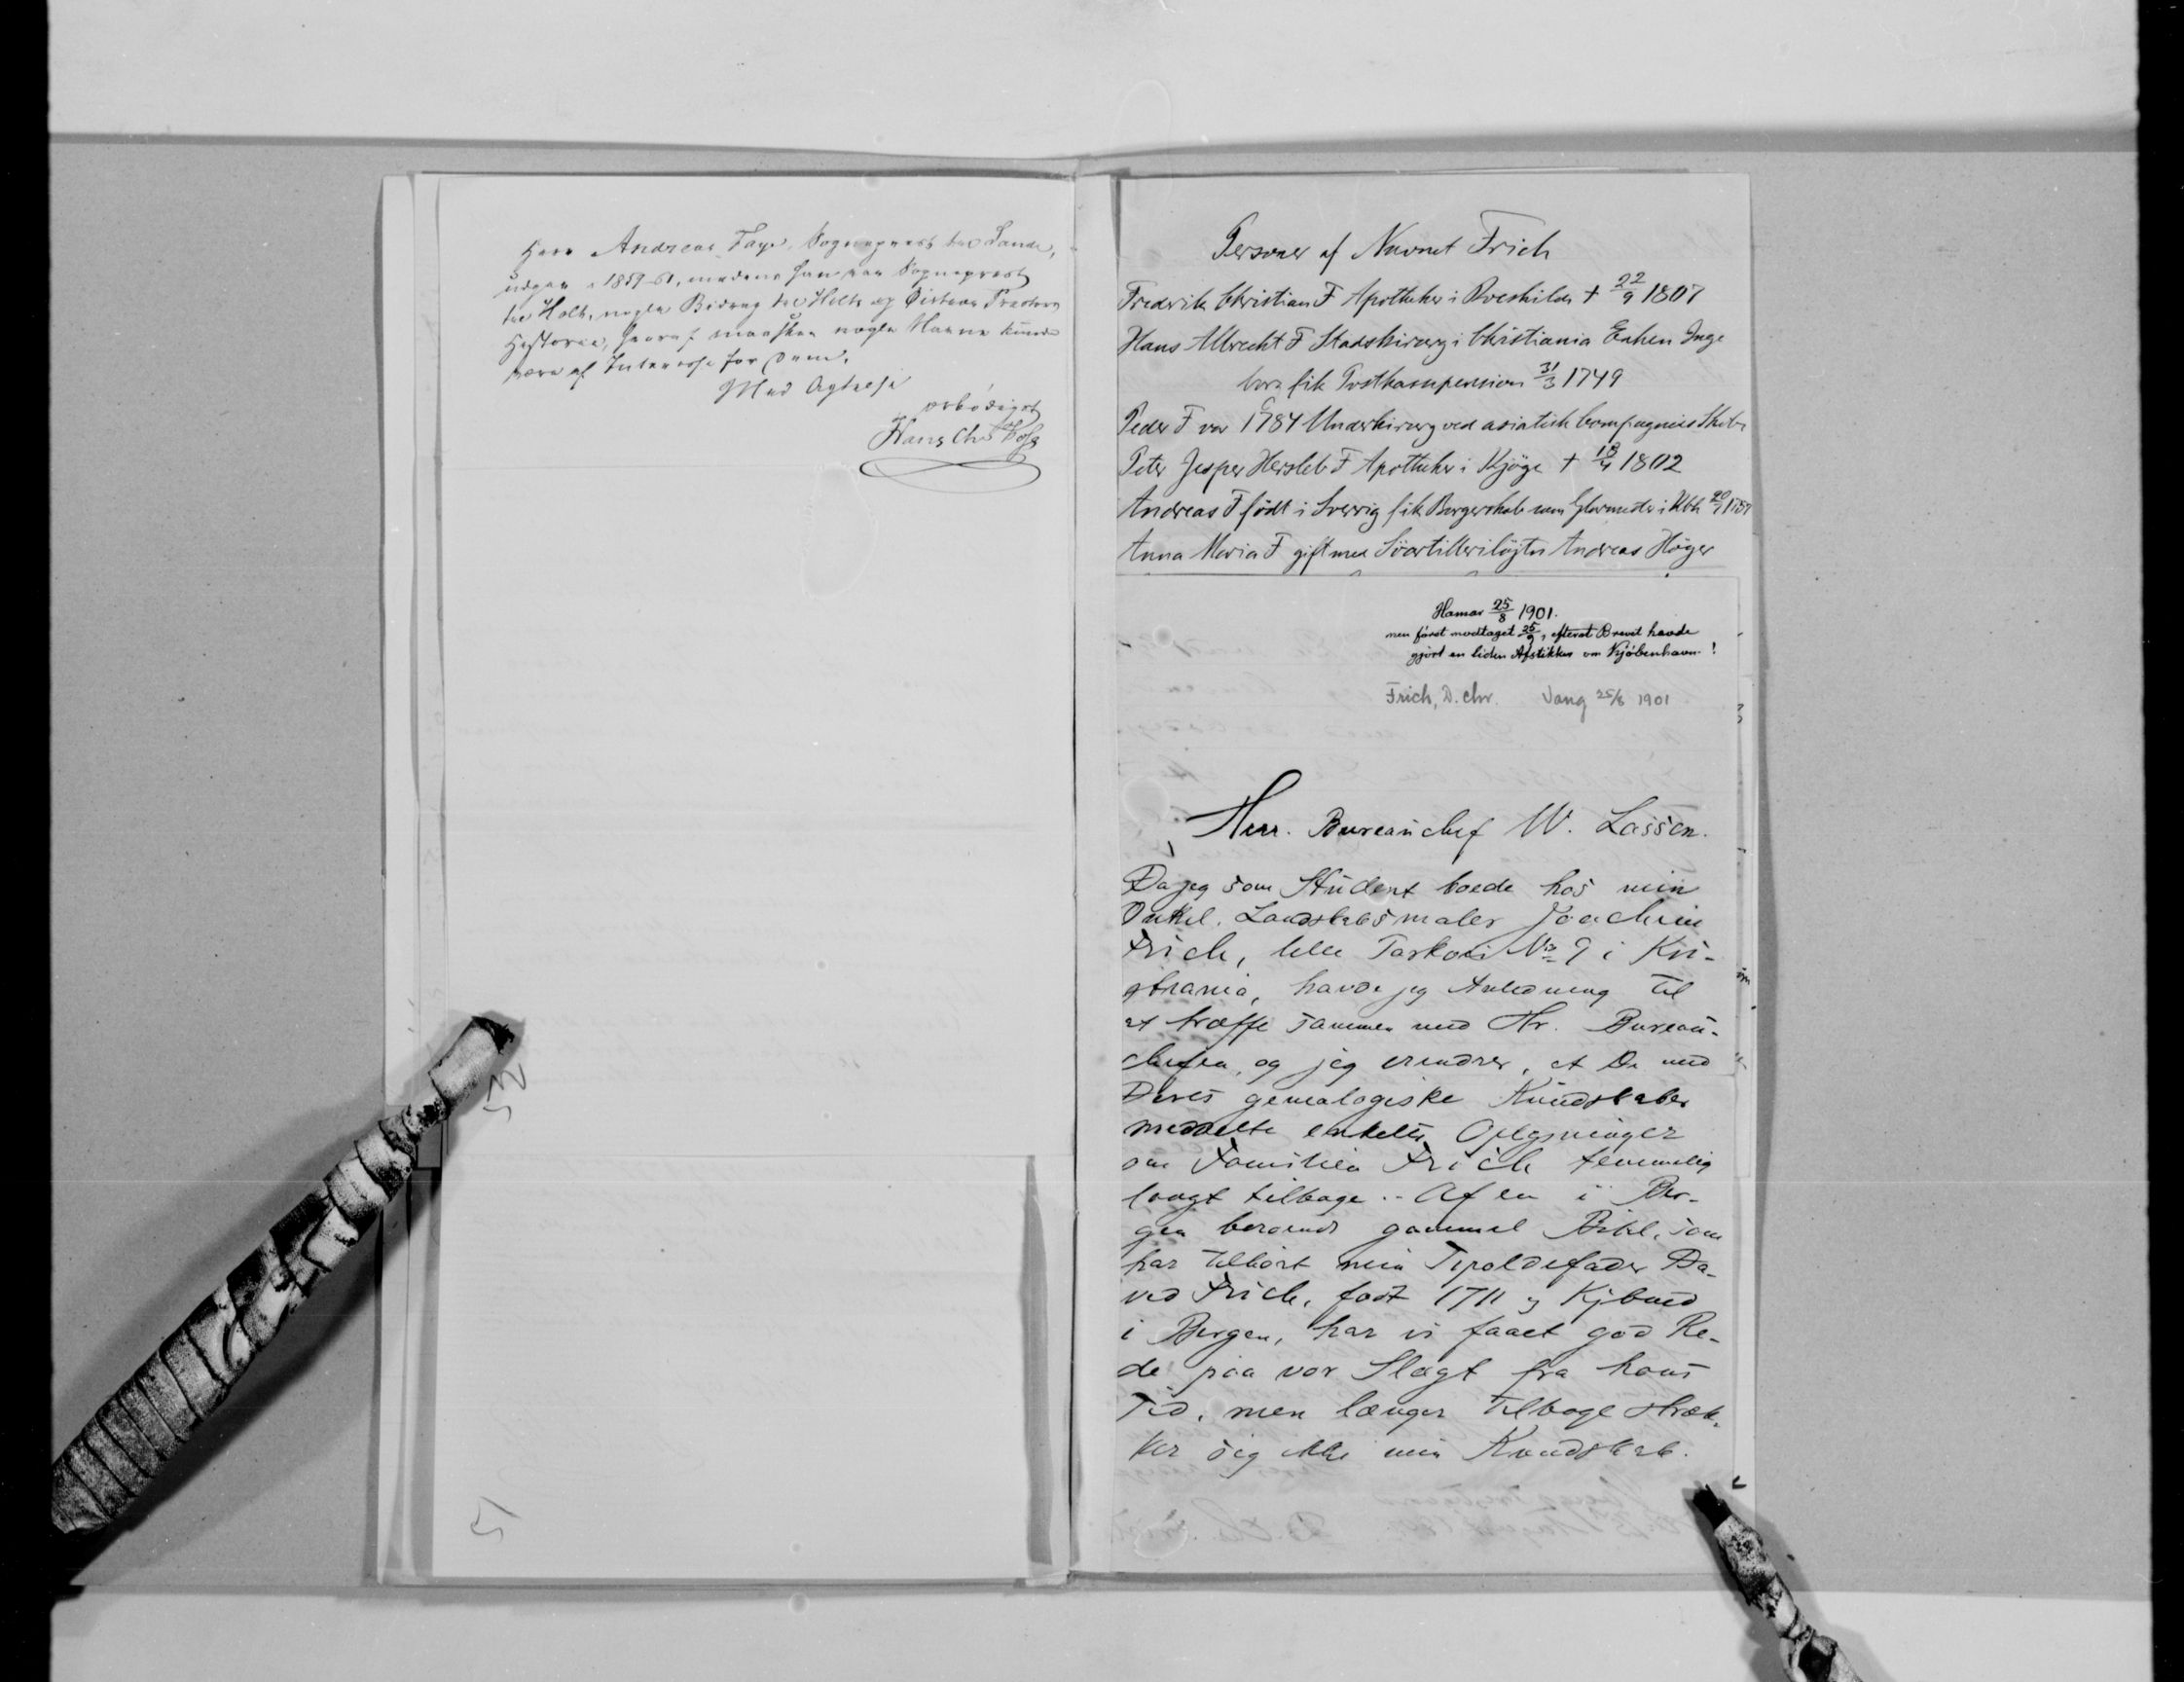 Herr Andreas Faye, Sogneprest til Sande,
udgav i 1859-61, medens han var Sogneprest
til Holt, nogle Bidrag til Holts og Presters
Historie, hvoraf maaske nogle Navne kunde
være af Interesse for Dem.
Med Agtelse
ærbødigst
Hans Chr
Personer af Navnet Frich
Frederik Christian F Apotheker i Roeskilde + 22/9 1807
Hans Albrecht F Stadskirurg i Christiania Enken Inge
fik Postkassepension 31/3 1749
Peder F var 1784 Underkirurg ved asiatisk Compagnies Skibe
Peter Jesper Hersleb F Apotheker i Kjöge + 18/4 1802
Andreas F födt i Sverrig fik Borgerskab som Glarmester i Kbh
Anna Maria F gift med Söartilleriløjtn Andreas Höger
Hamar 25/8 1901.
men först modtaget 25/9, efterat Brevet havde
gjort en liden Afstikker om Kjöbenhavn!
Frich, D. Chr. Vang 25/8 1901
Herr. Bureauchef W. Lassen.
Da jeg som Student boede hos min
Onkel, Landskabsmaler Joachim
Frich, lille No 9 i Kri-
stiania, havde jeg Anledning til
at træffe sammen med Hr. Bureau-
chefen, og jeg erindrer, at De med
Deres genealogiske Kundskaber
meddelte enkelte Oplysninger
om Familien Frich temmelig
langt tilbage. - Af en i Ber-
gen beroende gammel Bibel, som
har tilhørt min Tipoldefader Da-
vid Frich, født 1711 og Kjbmd
i Bergen, har vi faaet god Re-
de paa vor Slægt fra hans
Tid, men længer tilbage stræk-
ker sig ikke min Kundskab.
51
52